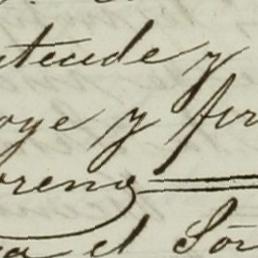 ntende y
oye y fir
oreno
ra el Sor